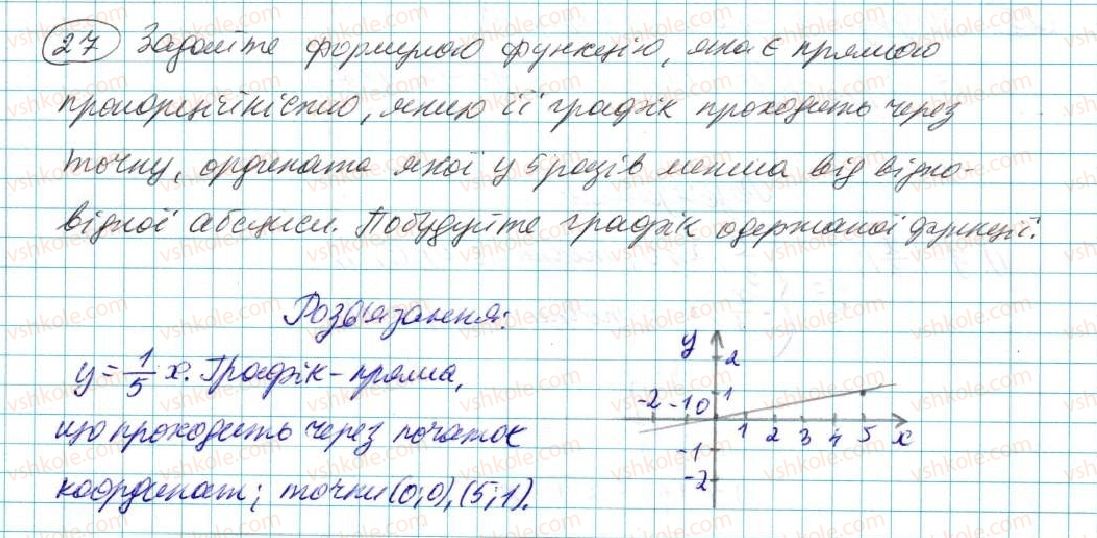 27 Задайте формулою функцію, яка є прямою
пропорційністю, якщо її графік проходить через
точку, ордината якої у 5 разів менша від відпо-
відної абсциси. Побудуйте графік одержаної функції.
Розв'язання:
y = 1/5 x. Графік - пряма,
що проходить через початок
координат; точки (0;0), (5;1).
y
2
-2 -1 0 1
1 2 3 4 5 x
-1
-2